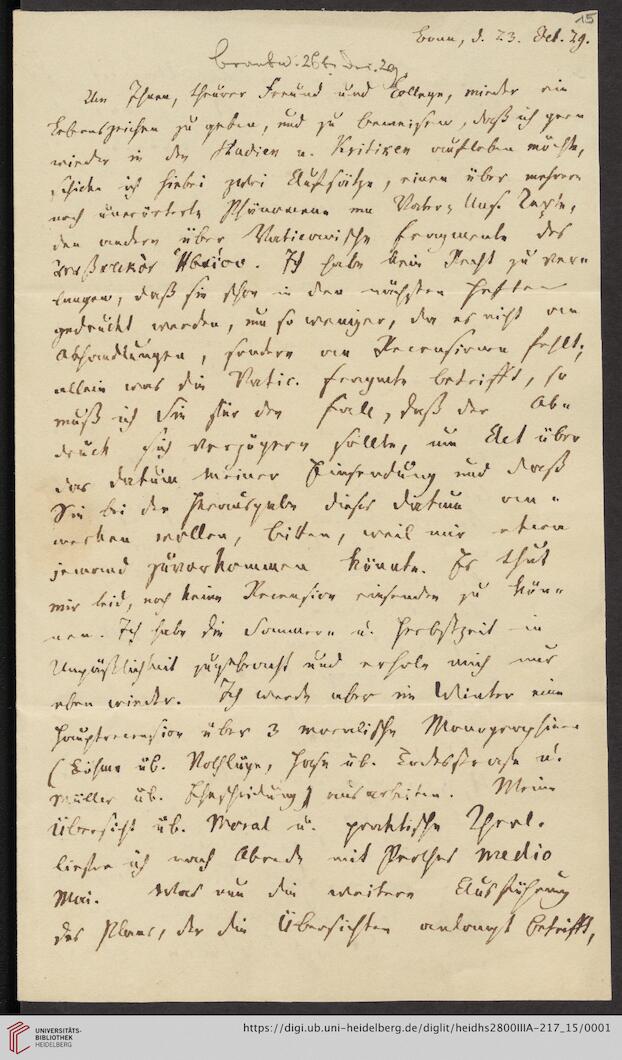 15
Bonn, d. 23. Oct. 29.
beantw. 26t. Dec. 29
Um Ihnen, theurer Freund und College, wieder ein
Lebenszeichen zu geben, und zu beweisen, daß ich gern
wieder in den Studien u. Kritiken aufleben möchte,
schicke ich hiebei zwei Aufsätze, einen über mehrere
noch unerörterte Phänomene im Texte,
den andern über Vaticanische Fragmente des
. Ich habe kein Recht zu ver-
langen, daß sie schon in den nächsten Heften
gedruckt werden, um so weniger, da es nicht an
Abhandlungen, sondern an Recensionen fehlt;
allein was die Vatic. Fragmente betrifft, so
muß ich Sie für den Fall, daß der Ab-
druck sich verzögern sollte, um Act über
das Datum meiner Einsendung und daß
Sie bei der Herausgabe dieses Datum an-
merken wollen, bitten, weil mir etwa
jemand zuvorkommen könnte. Es thut
mir leid, noch keine Recension einsenden zu kön-
nen. Ich habe die Sommer- u. Herbstzeit in
Unpäßlichkeit zugebracht und erhole mich nur
eben wieder. Ich werde aber im Winter eine
Hauptrecension über 3 moralische Monographien
( üb. Nothlüge, üb. Todesstrafe u.
Müller üb. Ehescheidung) ausarbeiten. Meine
Übersicht üb. Moral u. praktische Theol.
liefre ich nach Abrede mit Perthes medio
Mai. Was nun die weitere Ausführung
des Plans, der die Übersichten anlangt betrifft,
UNIVERSITÄTS-
BIBLIOTHEK
HEIDELBERG
https://digi.ub.uni-heidelberg.de/diglit/heidhs2800IIIA-217_15/0001